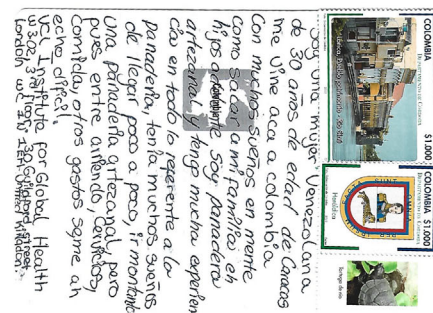 Soy una mujer Venezolana
de 30 años de edad de Caracas
me vine aca a colombia
Con muchos sueños en mente
como sacar a mi familia eh
hijos adelante soy panadera
artezanal y tengo mucha experien
cia en todo lo referente a la
panaderia, tenia muchos sueños
de llegar poco a poco, ir montando
una panaderia artezanal pero
pues entre arriendo, servicios,
comida, otros gastos seme ah
echo dificil.
UCL Institute for Global Health
30 Guilford Street
London WC1N 1EH
COLOMBIA
$1.000
COLOMBIA
$1.000
Tortuga de río